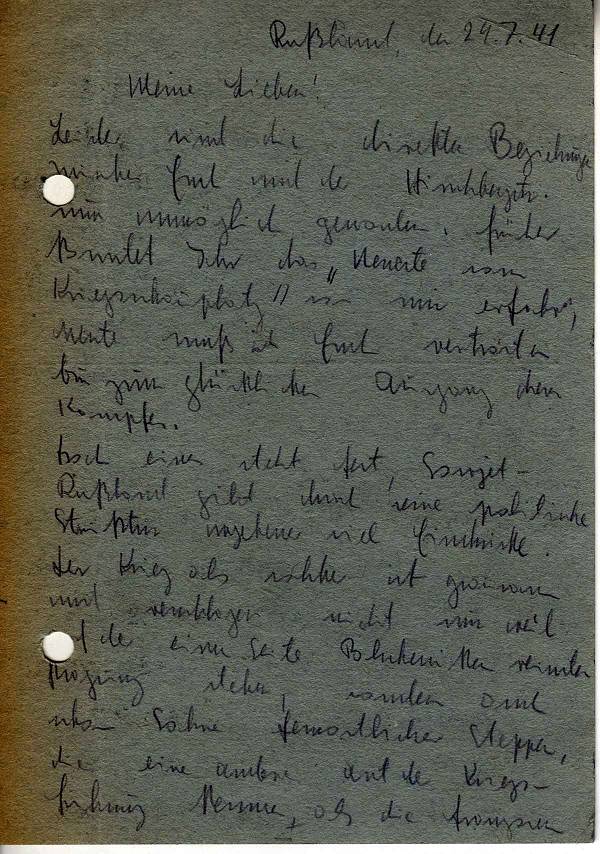 Rußland, den 24.7.41
Meine Lieben!
Leider sind die direkten Beziehungen
zwischen Euch und der
nun unmöglich geworden. früher
konntet Ihr das "Neueste vom
Kriegsschauplatz" von mir erfahren,
heute muß ich Euch vertrösten
bis zum glücklichen Ausgang dieser
Kämpfe.
Doch eines steht fest, Sowjet-
Rußland gibt durch seine politische
Struktur ungeheuer viel Eindrücke.
Der Krieg als solcher ist grausam
und verschlagen nicht nur weil
auf der einen Seite Bolschewisten
stehen, sondern auch
Söhne fernöstlicher Steppen,
die eine andere Art der Kriegs-
führung kennen, als die